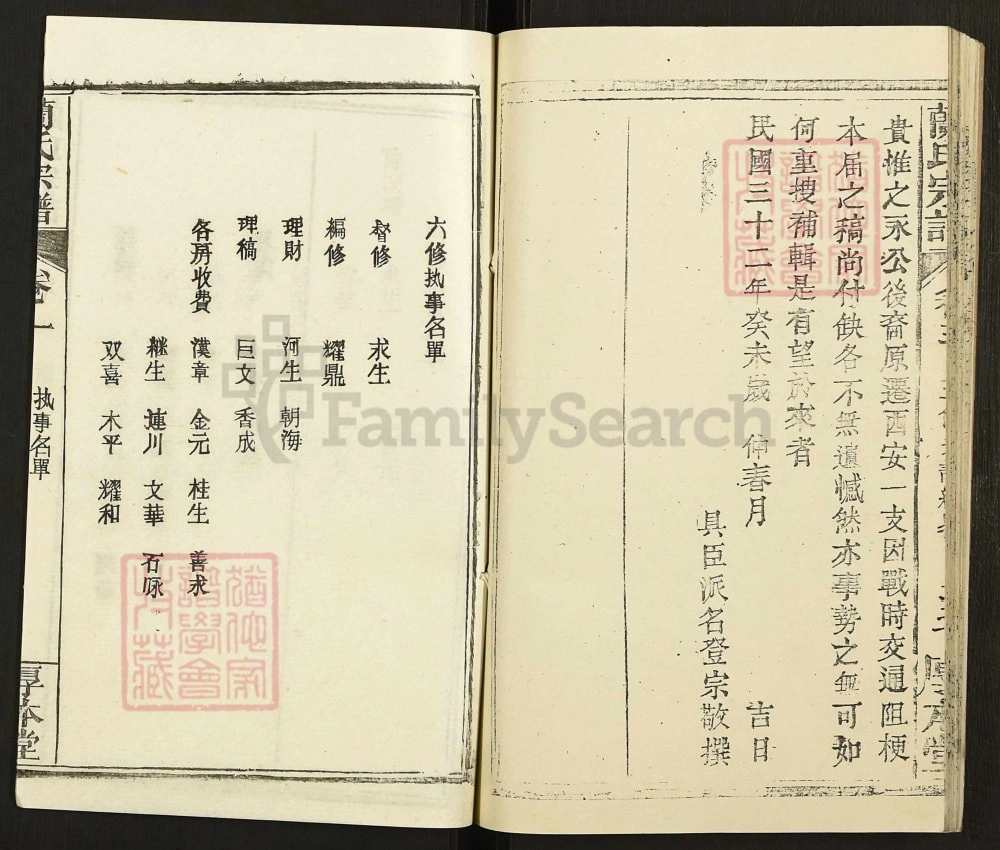 貴惟之永公後裔原遷西安一支因戰時交通阻梗
本届之稿尚付缺各不無遺憾然亦事勢之無可如
何重搜補輯是有望於來者
民國三十二年癸未歲 仲春月 吉日
具臣派名登宗敬撰
六修执事名單
督修 求生
編修 耀鼎
理財 河生 朝海
理稿 巨文 香成
各房收費 漢章 金元 桂生 善求
継生 連川 文華 石泳
双喜 木平 耀和
蘭氏宗譜 卷一 执事名單 厚本堂
猶他家譜學會珍藏
猶他家譜學會珍藏
FamilySearch